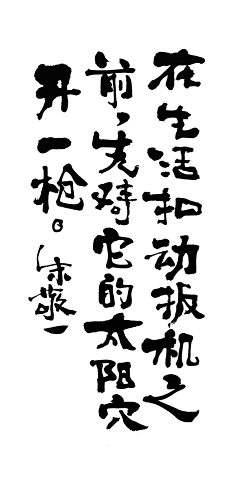 在生活扣动扳机之
前，先对它的太阳穴
开一枪。
敬一